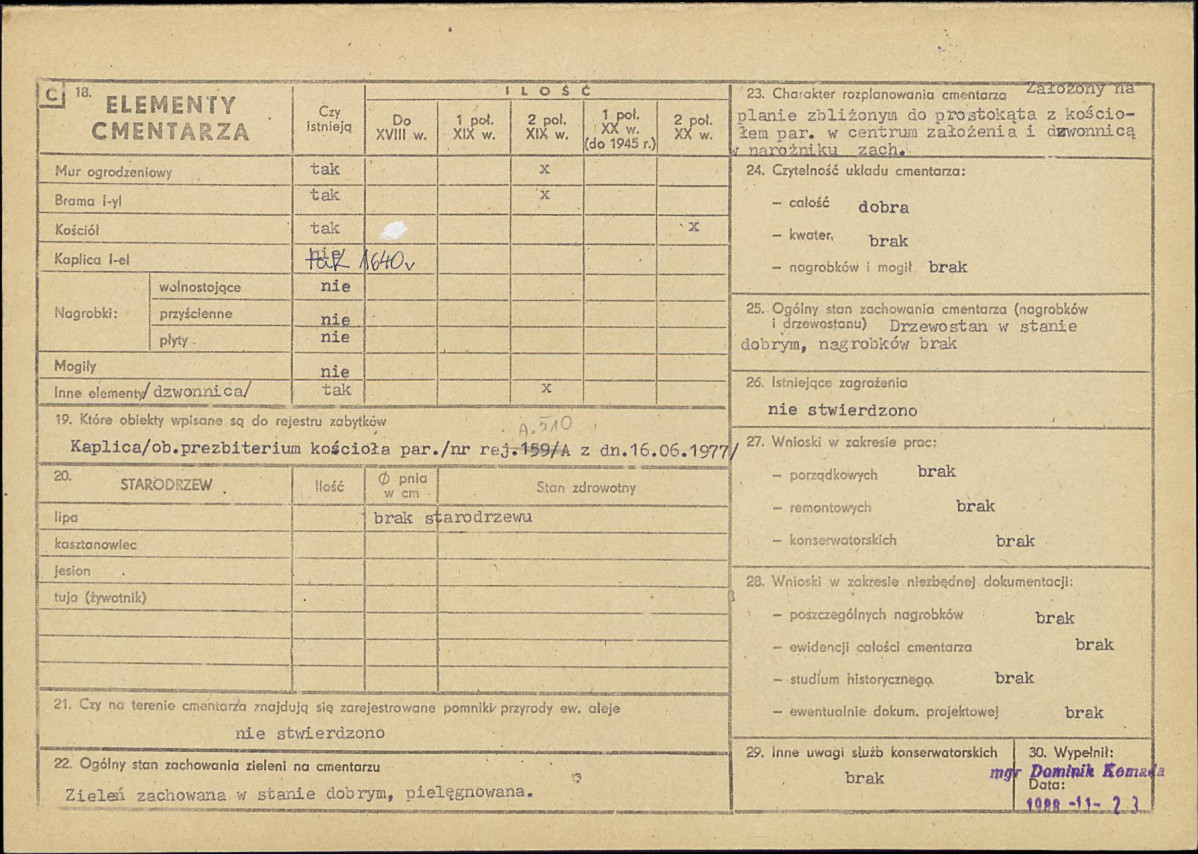 C 18. ELEMENTY CMENTARZA
Czy istnieją
ILOŚĆ
Do XVIII w.
1 poł. XIX w.
2 poł. XIX w.
1 poł. XX w. (do 1945 r.)
2 poł. XX w.
Mur ogrodzeniowy tak x
Brama I-yl tak x
Kościół tak x
Kaplica I-el nie tak 1640 r
Nagrobki:
wolnostojące nie
przyścienne nie
płyty nie
Mogiły nie
Inne elementy/dzwonnica/ tak x
19. Które obiekty wpisane są do rejestru zabytków
A.510
Kaplica/ob.prezbiterium kościoła par./nr rej.159/A z dn.16.06.1977/
20. STARODRZEW Ilość Ø pnia w cm Stan zdrowotny
lipa brak starodrzewu
kasztanowiec
jesion
tuja (żywotnik)
21. Czy na terenie cmentarza znajdują się zarejestrowane pomniki przyrody ew. aleje
nie stwierdzono
22. Ogólny stan zachowania zieleni na cmentarzu
Zieleń zachowana w stanie dobrym, pielęgnowana.
23. Charakter rozplanowania cmentarza Założony na
planie zbliżonym do prostokąta z kościo-
łem par. w centrum założenia i dzwonnicą
w narożniku zach.
24. Czytelność układu cmentarza:
– całość dobra
– kwater, brak
– nagrobków i mogił brak
25. Ogólny stan zachowania cmentarza (nagrobków
i drzewostanu) Drzewostan w stanie
dobrym, nagrobków brak
26. Istniejące zagrożenia
nie stwierdzono
27. Wnioski w zakresie prac:
– porządkowych brak
– remontowych brak
– konserwatorskich brak
28. Wnioski w zakresie niezbędnej dokumentacji:
– poszczególnych nagrobków brak
– ewidencji całości cmentarza brak
– studium historycznego brak
– ewentualnie dokum. projektowej brak
29. Inne uwagi służb konserwatorskich
brak
30. Wypełnił:
mgr Dominik Komada
Data:
1988 -11- 23